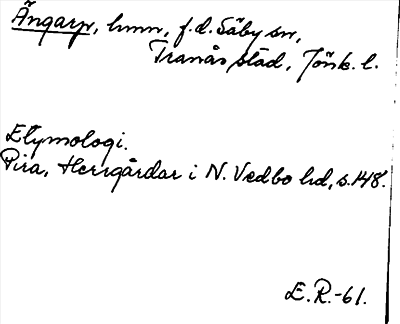 Ängarp, hmn, f.d. Säby sn,
Tranås stad, Jönk. l.
Etymologi.
Pira, Herrgårdar i N. Vedbo hd, s. 148.
E.R.-61.